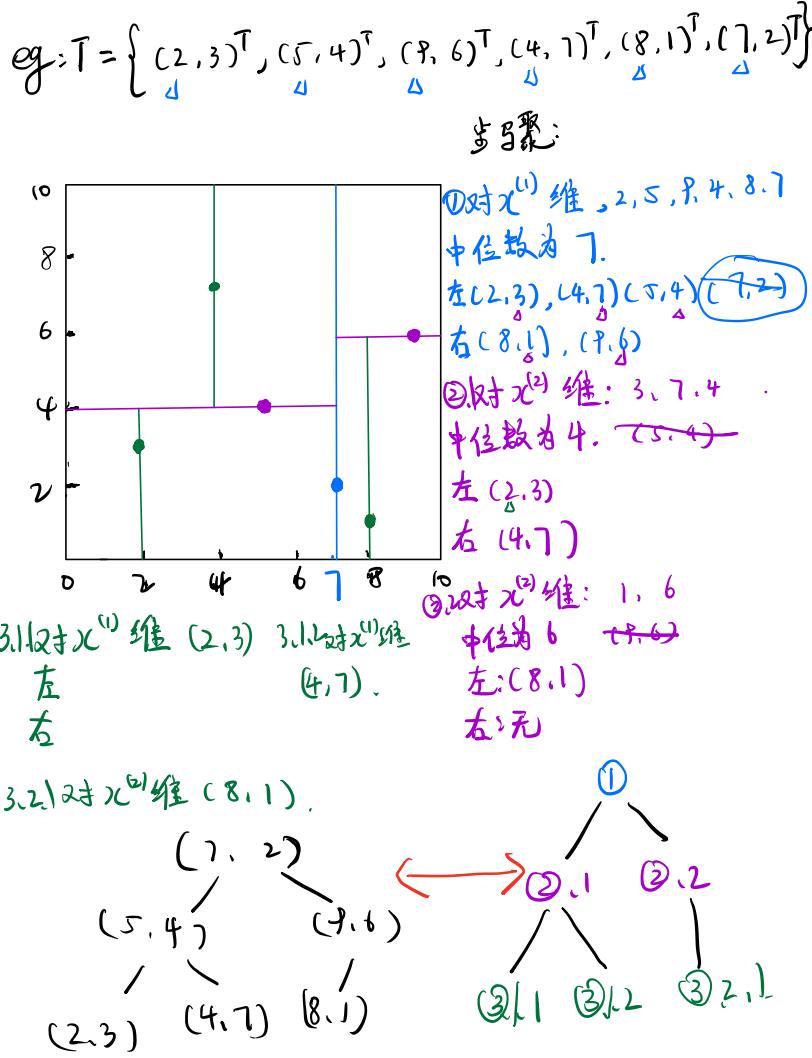 eg: T = { (2,3)^T, (5,4)^T, (9,6)^T, (4,7)^T, (8,1)^T, (7,2)^T }
步骤:
①对x^(1)维, 2、5、9、4、8、7
中位数为7.
左(2,3), (4,7) (5,4) (7,2)
右(8,1), (9,6)
②.1对x^(2)维: 3、7、4
中位数为4. (5,4)
左(2,3)
右(4,7)
②.2对x^(2)维: 1、6
中位为6 (9,6)
左:(8,1)
右:无
10
8
6
4
2
0 2 4 6 7 8 10
3.1.1对x^(1)维 (2,3)
左
右
3.1.2对x^(1)维
(4,7).
3.2.1对x^(2)维 (8,1).
(7, 2)
(5,4) (9,6)
(2,3) (4,7) (8,1)
①
②.1 ②.2
③.1.1 ③.1.2 ③.2.1